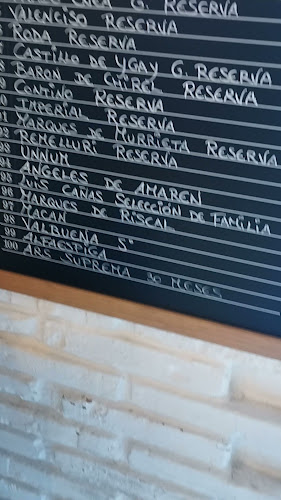 G. RESERVA
VALENCISO RESERVA
RODA RESERVA
CASTILLO DE YGAY G. RESERVA
BARON DE CHIREL RESERVA
CONTINO RESERVA
IMPERIAL RESERVA
MARQUES DE MURRIETA RESERVA
REMELLURI RESERVA
UNNUM
94 ANGELES DE AMAREN
95 LUIS CAÑAS SELECCIÓN DE FAMILIA
96 MARQUES DE RISCAL
97 MACAN
98 VALBUENA 5º
99 ALFAESPIGA
100 ARS SUPREMA 30 MESES